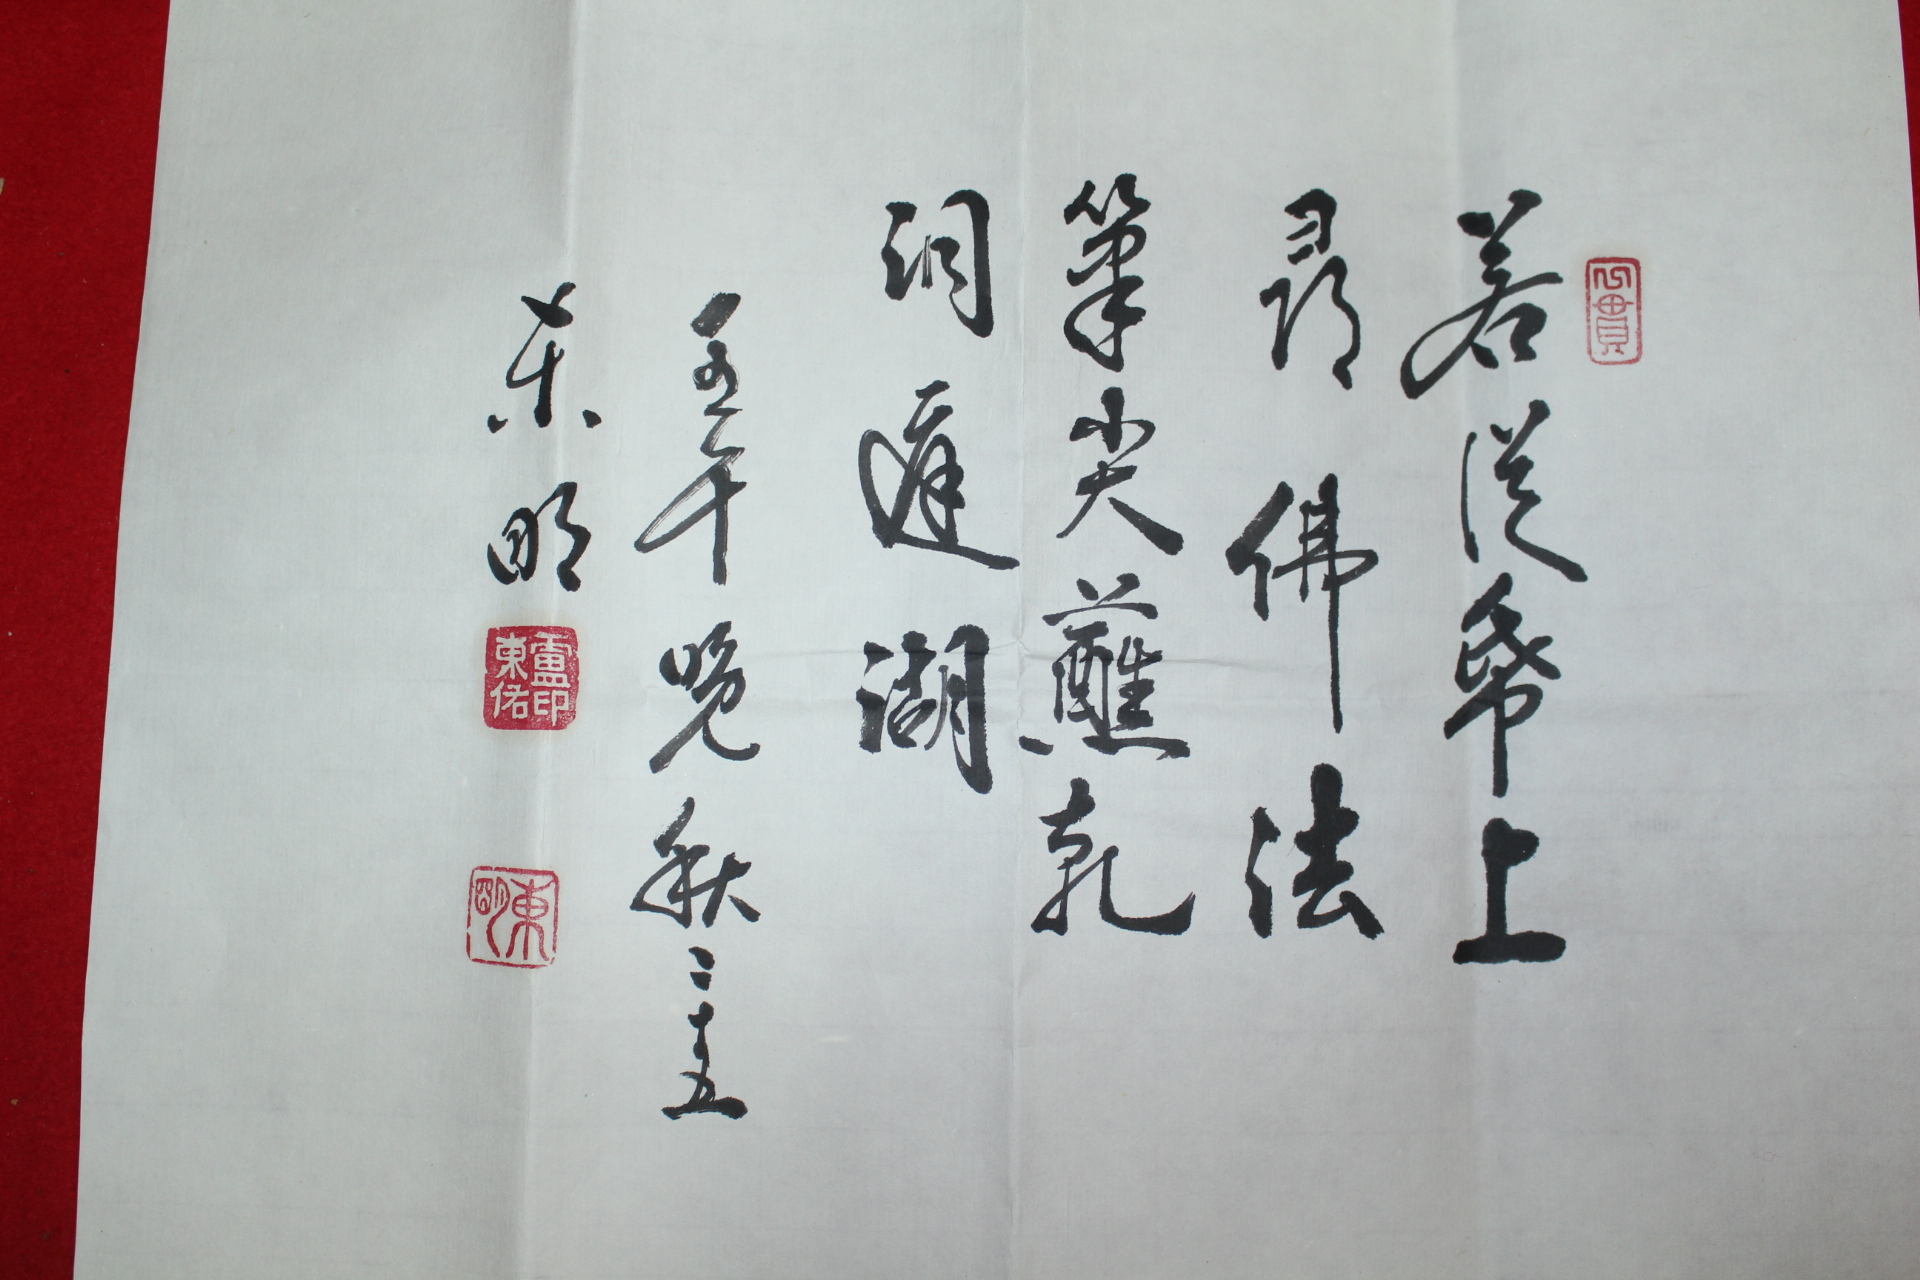 若從帋上
尋佛法
筆尖蘸乾
洞庭湖
午晚秋
東明
盧印
東佑
東明